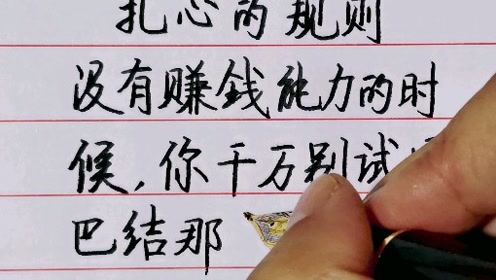 扎心的规则
没有赚钱能力的时
候,你千万别试
巴结那